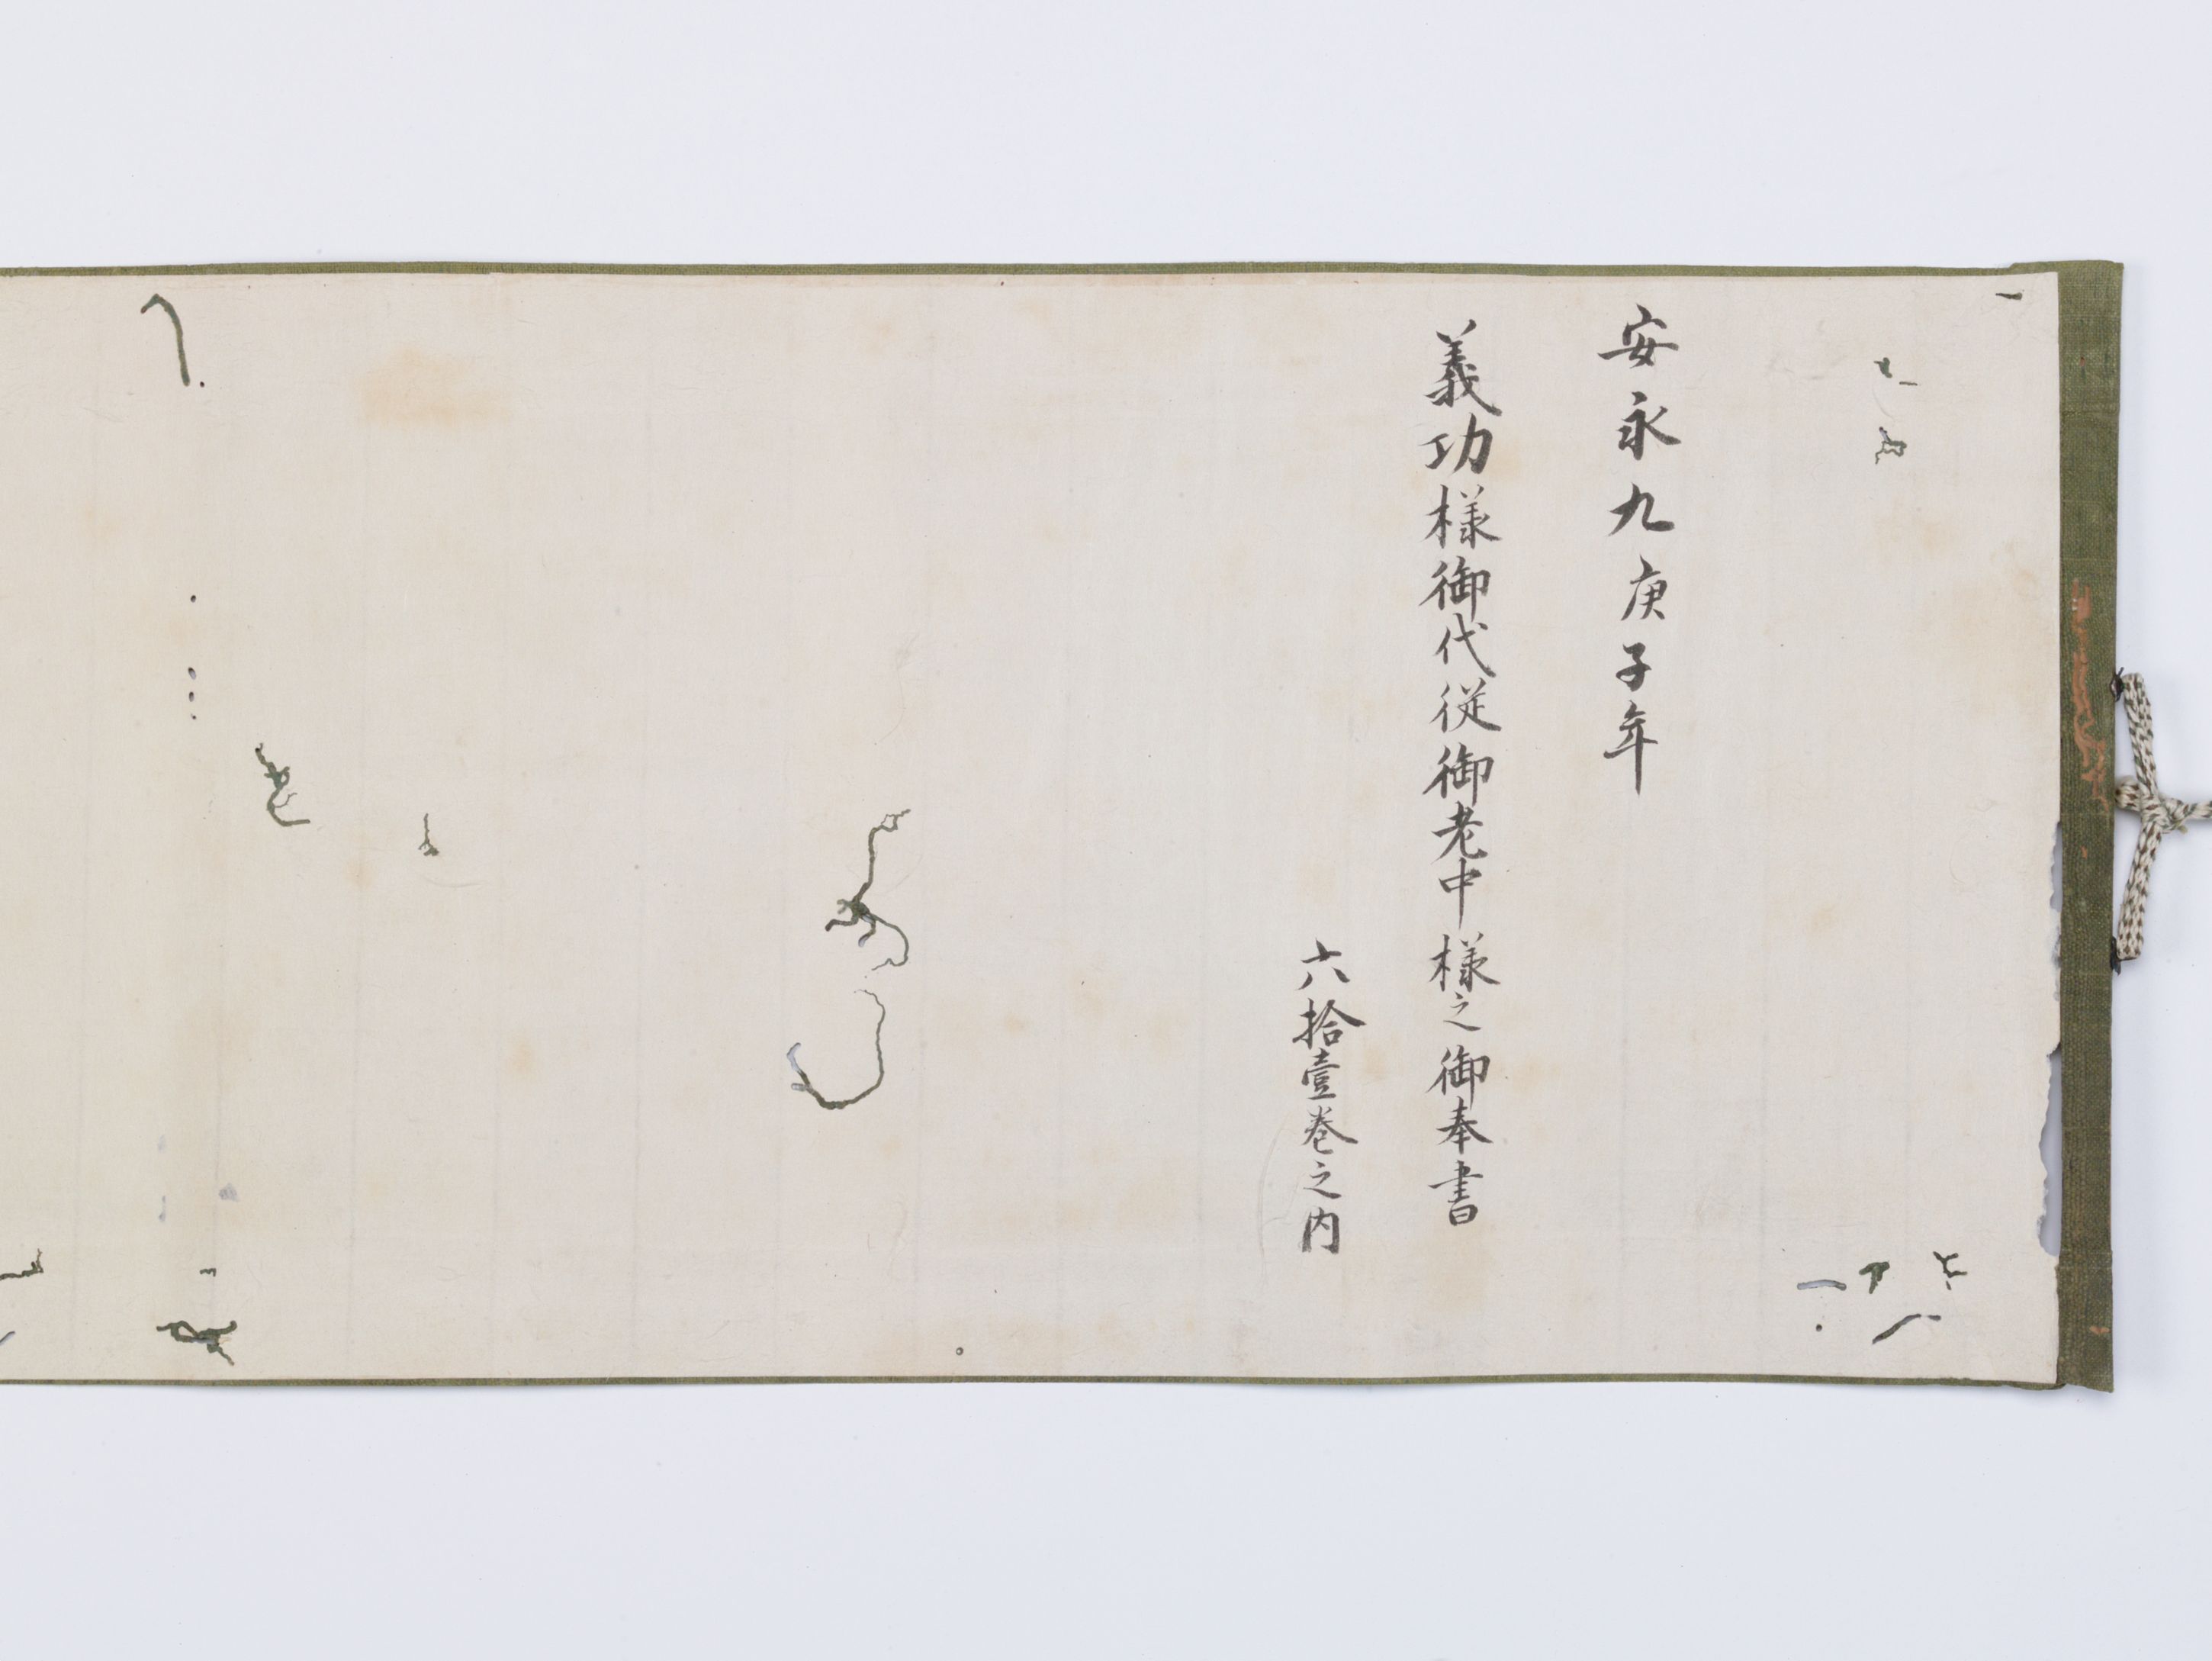 安永九庚子年
義功様御代従御老中様之御奉書
六拾壹巻之内